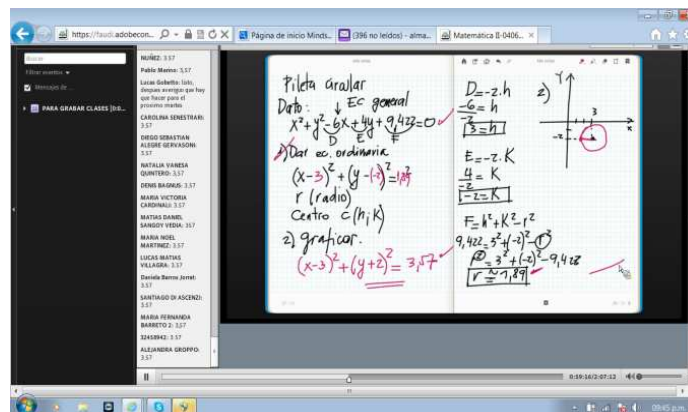 https://faudi.adobecon...
Página de inicio Minds...
(396 no leídos) - alma...
Matemática II-0406...
Buscar
Filtrar eventos
Mensajes de
PARA GRABAR CLASES [D:0...
NUÑEZ: 3.57
Pablo Marino: 3,57
CAROLINA SENESTRARI: 3.57
DIEGO SEBASTIAN ALEGRE GERVASONI: 3.57
NATALIA VANESA QUINTERO: 3,57
DENIS BAGNUS: 3.57
MARIA VICTORIA CARDINALI: 3.57
MATIAS DANIEL SANGOY VEDIA: 357
MARIA NOEL MARTINEZ: 3.57
LUCAS MATIAS VILLAGRA: 3.57
3.57
SANTIAGO DI ASCENZI: 3.57
MARIA FERNANDA BARRETO 2: 3,57
32458942: 3.57
ALEJANDRA GROPPO: 3.57
Pileta circular
Dato: ↓ Ec general
x²+y²-6x+4y+9,428=0
D E F
1) Dar ec. ordinaria
(x-3)²+(y-(-2))²=1,89²
r (radio)
Centro C(h;K)
2) graficar.
(x-3)²+(y+2)²=3,57
D=-2.h
-6=h
-2
3=h
E=-2.K
4=K
-2
-2=K
F=h²+K²-r²
9,428=3²+(-2)²-r²
r²=3²+(-2)²-9,428
r≅1,89
2)
Y
3
x
-2
0:59:16/2:07:12
09:45 p.m.